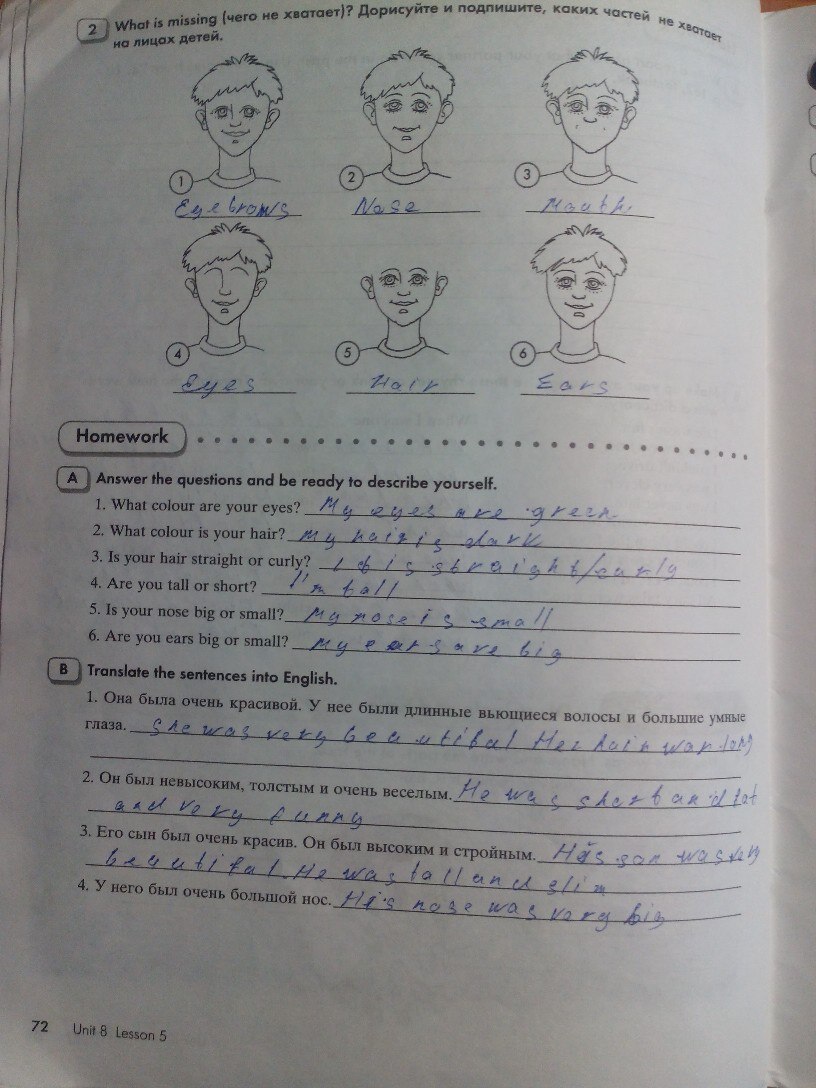 2 What is missing (чего не хватает)? Дорисуйте и подпишите, каких частей не хватает
на лицах детей.
1 2 3
Eyebrows Nose Mouth
4 5 6
Eyes Hair Ears
Homework
A Answer the questions and be ready to describe yourself.
1. What colour are your eyes? My eyes are green
2. What colour is your hair? My hair is dark
3. Is your hair straight or curly? It is straight/curly
4. Are you tall or short? I'm tall
5. Is your nose big or small? My nose is small
6. Are you ears big or small? My ears are big
B Translate the sentences into English.
1. Она была очень красивой. У нее были длинные вьющиеся волосы и большие умные
глаза. She was very beautiful Her hair was long
2. Он был невысоким, толстым и очень веселым. He was short and fat
and very funny
3. Его сын был очень красив. Он был высоким и стройным. His son was very
beautiful. He was tall and slim
4. У него был очень большой нос. His nose was very big
72 Unit 8 Lesson 5